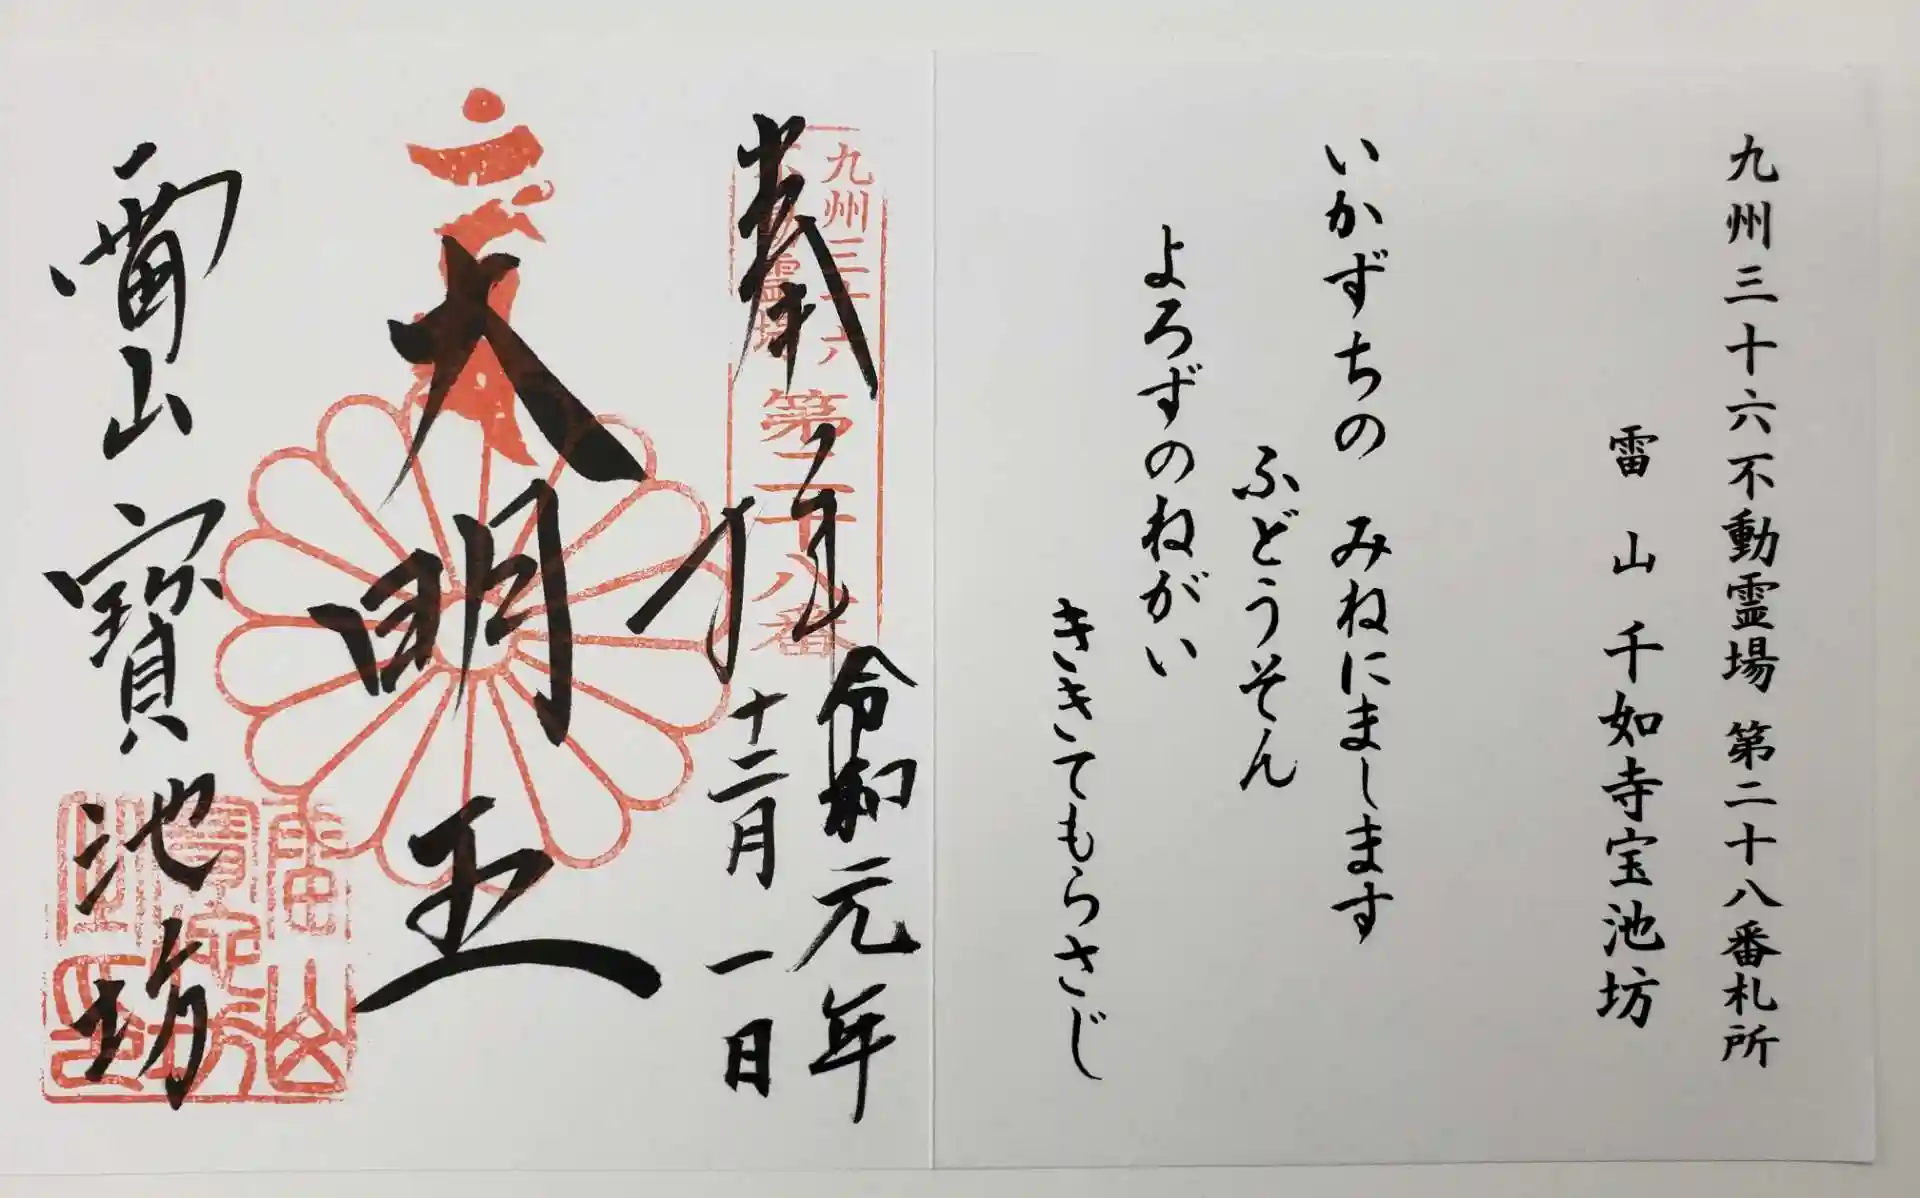 九州三十六不動霊場 第二十八番札所
雷山千如寺宝池坊
いかずちの みねにまします
ふどうそん
よろずのねがい
ききてもらさじ
九州三十六
不動霊場
第二十八番
奉拝
令和元年
十二月一日
大明王
雷山寳池坊